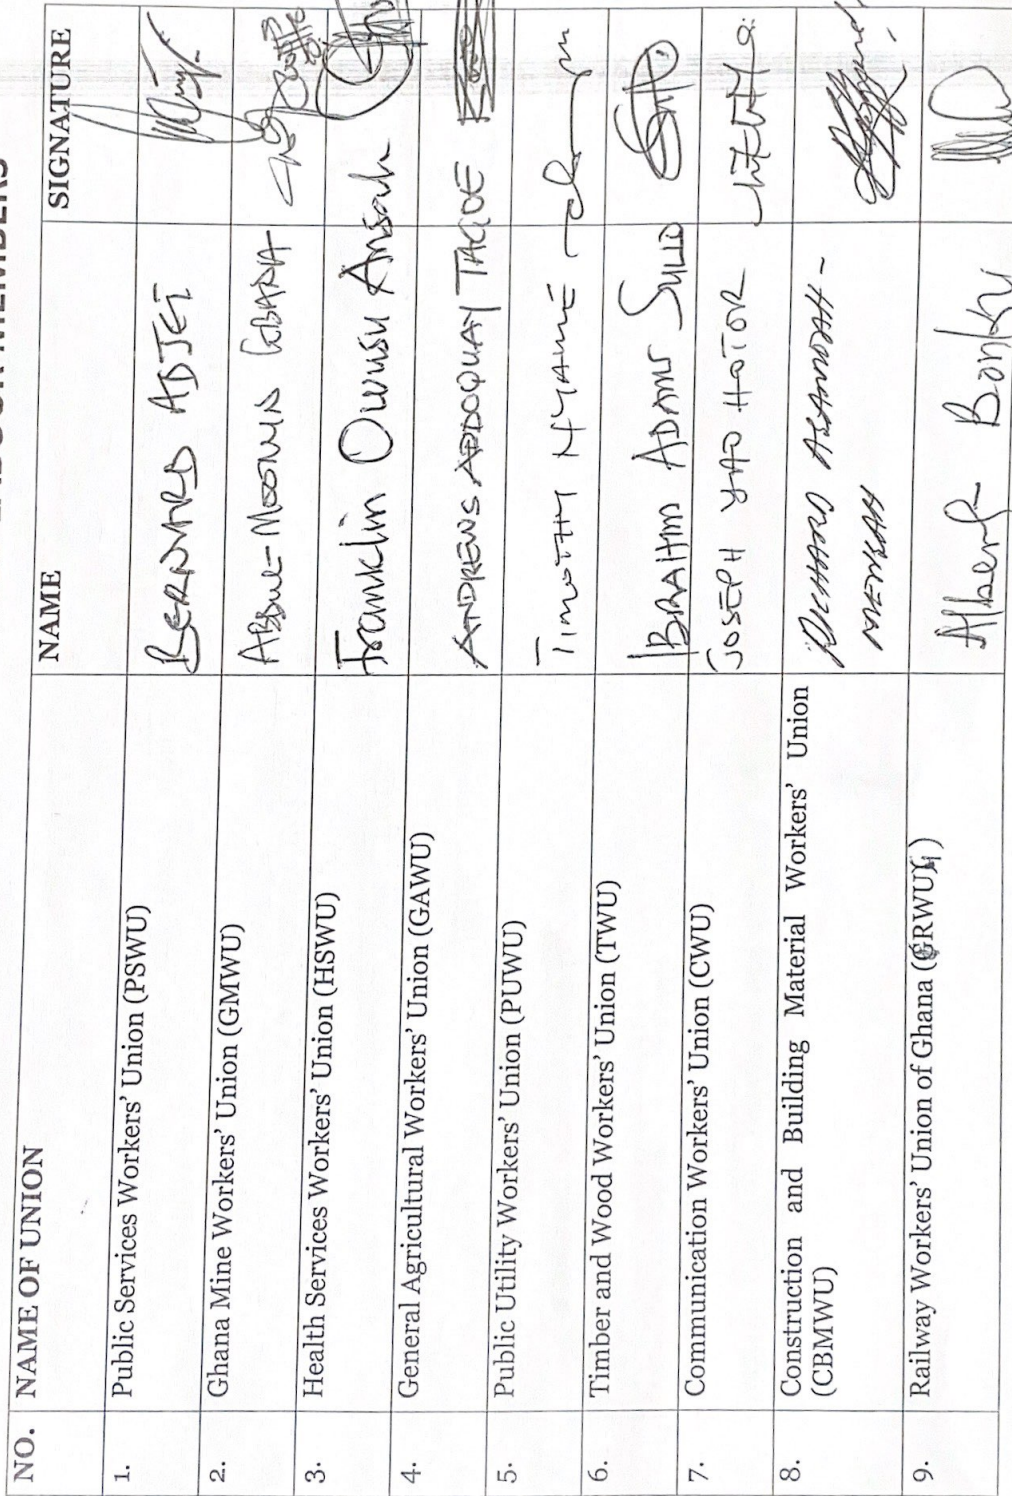 NO. NAME OF UNION NAME SIGNATURE
1. Public Services Workers' Union (PSWU) BERNARD ADJEI
2. Ghana Mine Workers' Union (GMWU) ABDUL-MOOMIN GBANA
3. Health Services Workers' Union (HSWU) Franklin Owusu Ansah
4. General Agricultural Workers' Union (GAWU) ANDREWS ADDOQUAY TAGOE
5. Public Utility Workers' Union (PUWU) TIMOTHY NYAME
6. Timber and Wood Workers' Union (TWU) IBRAHIM ADAMS
7. Communication Workers' Union (CWU) JOSEPH YAO HOTOR
8. Construction and Building Material Workers' Union RICHARD
(CBMWU) MENSAH
9. Railway Workers' Union of Ghana